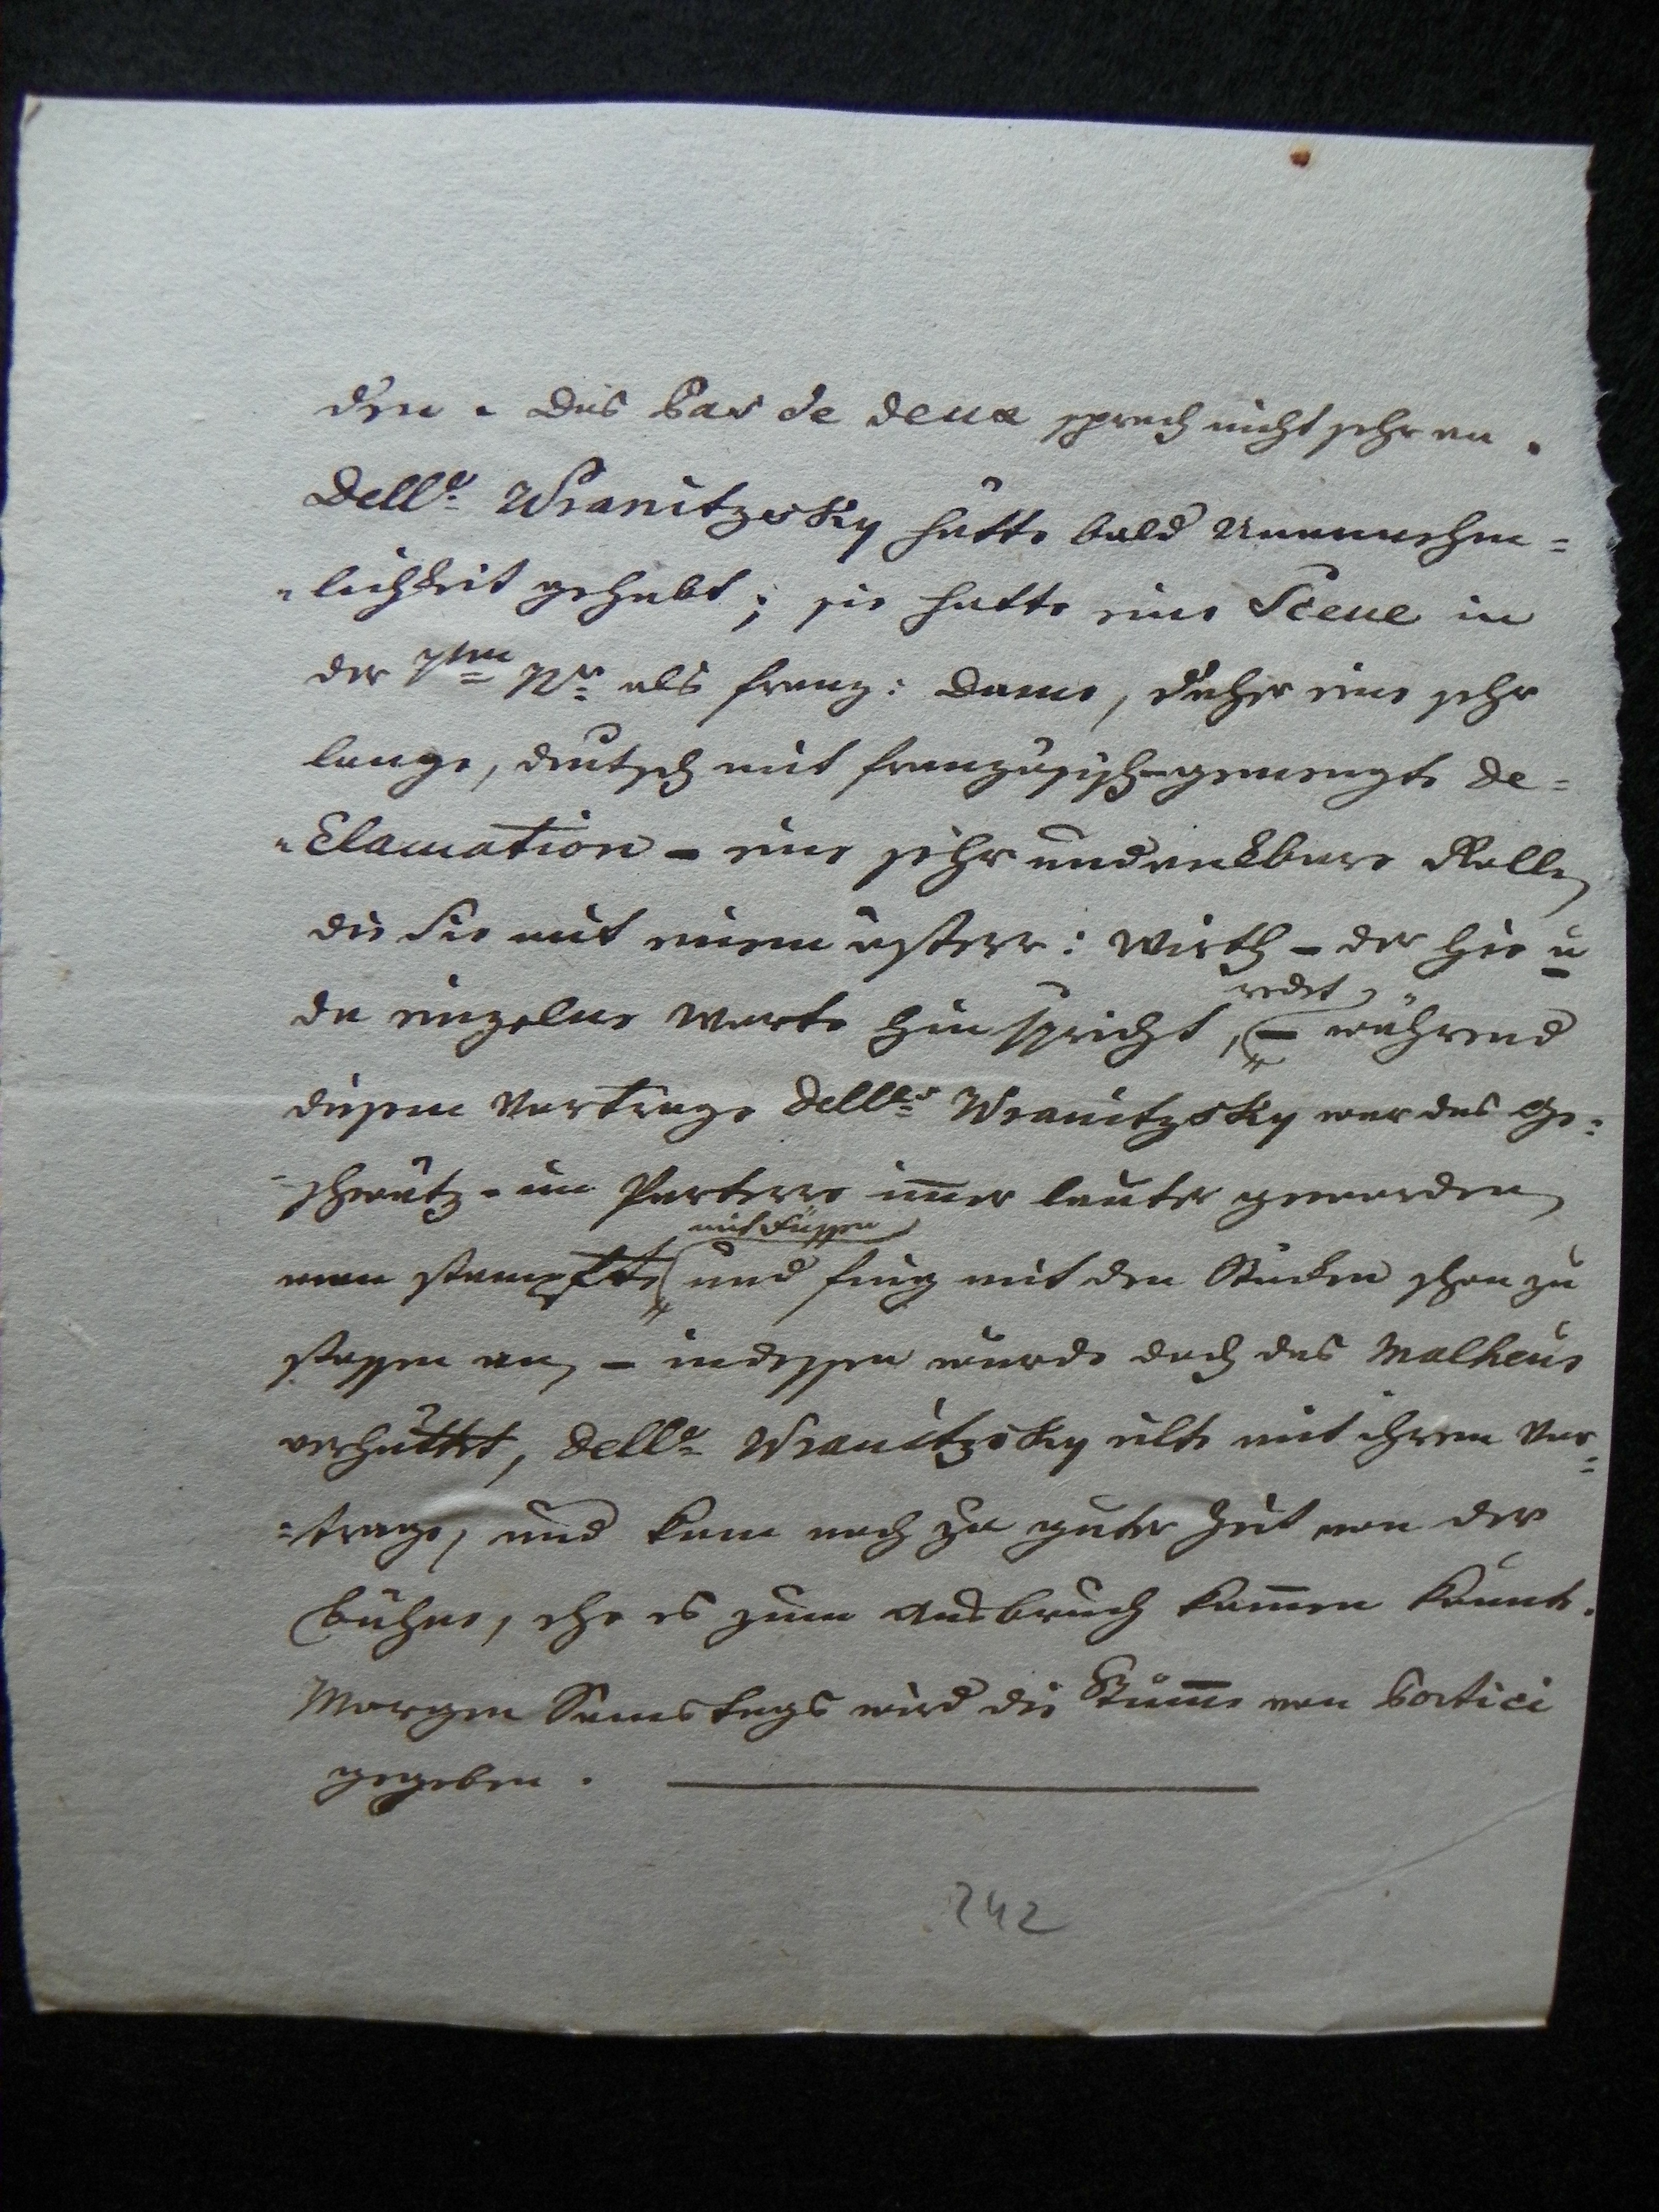 den. Das Pas de deux sprach nicht sehr an.
Delle. Wranitzsky hätte bald Unannehm=
=lichkeit gehabt; sie hatte eine Scene in
der 7ten Nr. als franz: Dame, daher eine sehr
lange, deutsch mit französisch-gemengte De=
=clamation – eine sehr undankbare Rolle,
die Sie mit einem österr: Wirth – der hie u
da einzelne Worte hinspricht, redet, – während
diesem Vortrage Delle. Wranitzsky war das Ge=
=schwätz im Parterre im̅er lauter geworden,
man stampfte mit Füssen, und fing mit den Stöcken schon zu
stossen an, – indessen wurde doch das Malheur
verhüttet, Delle. Wranitzsky eilte mit ihrem Vor=
=trage, und kam noch zu guter Zeit von der
Bühne, ehe es zum Ausbruch kom̅en konnte.
Morgen Samstags wird die Stum̅e von Portici
gegeben.
242